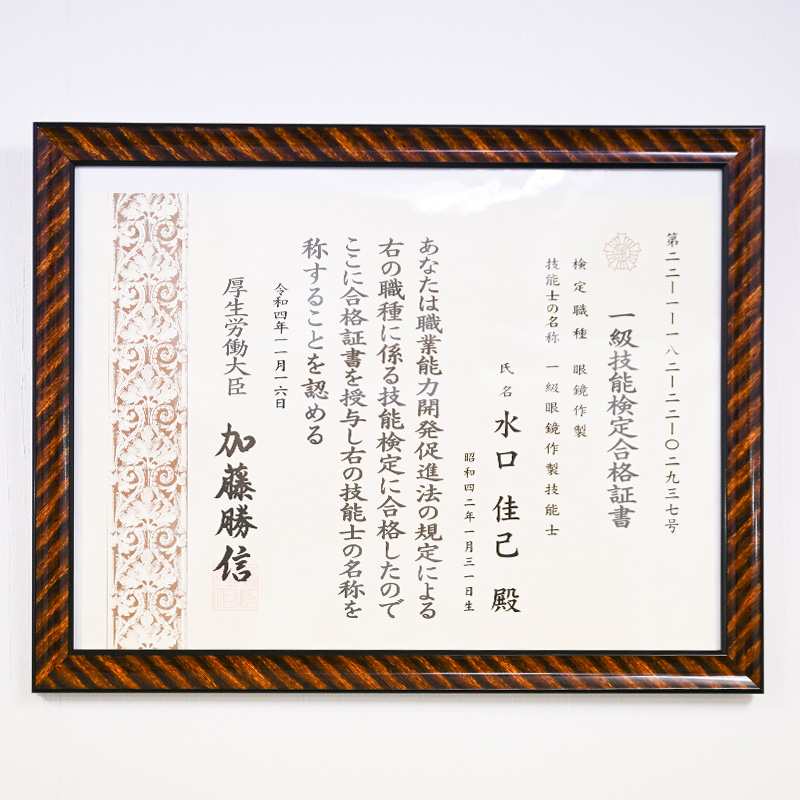 第二二ー一ー一八二ー二二ー〇二九三七号
一級技能検定合格証書
検定職種 眼鏡作製
技能士の名称 一級眼鏡作製技能士
氏名 水口 佳己 殿
昭和四二年一月三一日生
あなたは職業能力開発促進法の規定による
右の職種に係る技能検定に合格したので
ここに合格証書を授与し右の技能士の名称を
称することを認める
令和四年一一月一六日
厚生労働大臣 加藤勝信